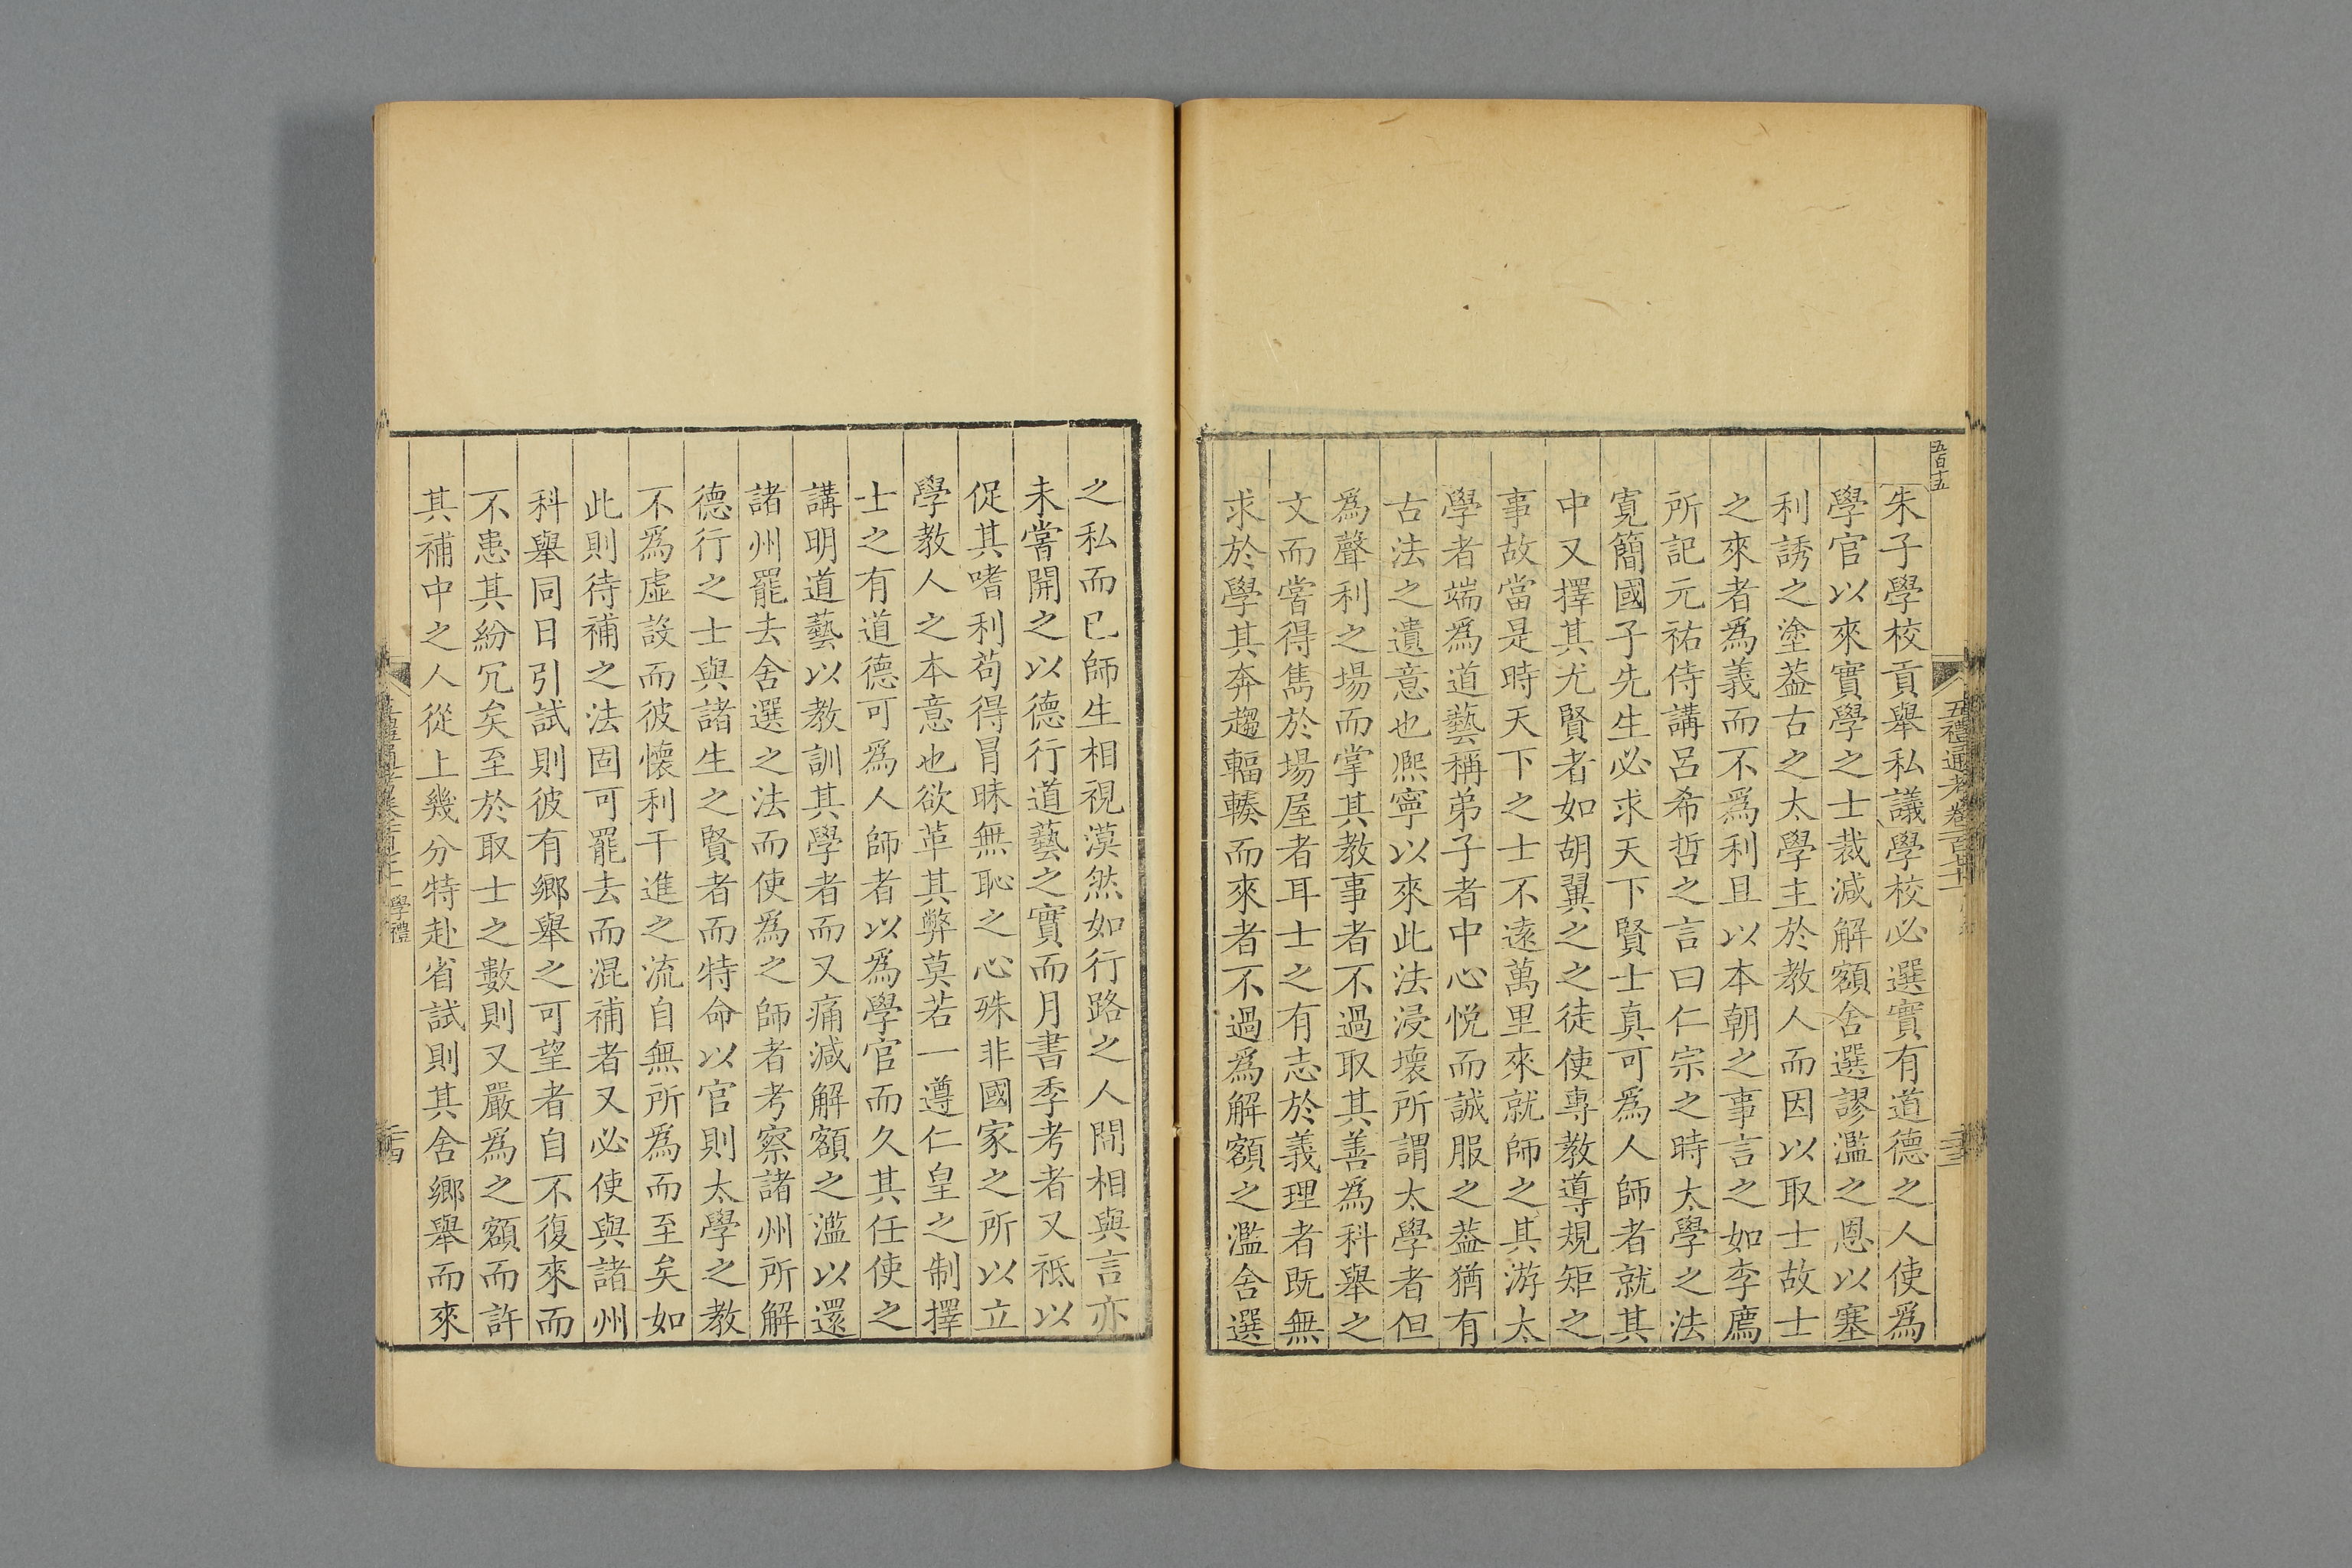 五百十五
朱子學校貢舉私議學校必選實有道德之人使爲
學官以來實學之士裁減解額舍選謬濫之恩以塞
利誘之塗葢古之太學主於教人而因以取士故士
之來者爲義而不爲利且以本朝之事言之如李廌
所記元祐侍講呂希哲之言曰仁宗之時太學之法
寛簡國子先生必求天下賢士真可爲人師者就其
中又擇其尤賢者如胡翼之之徒使專教導規矩之
事故當是時天下之士不逺萬里來就師之其游太
學者端爲道藝稱弟子者中心悅而誠服之葢猶有
古法之遺意也熈寧以來此法浸壞所謂太學者但
爲聲利之場而掌其教事者不過取其善爲科舉之
文而嘗得雋於場屋者耳士之有志於義理者既無
求於學其奔趨輻輳而來者不過爲解額之濫舍選
之私而已師生相視漠然如行路之人間相與言亦
未嘗開之以德行道藝之實而月書季考者又祗以
促其嗜利苟得冒昧無恥之心殊非國家之所以立
學教人之本意也欲革其弊莫若一遵仁皇之制擇
士之有道德可爲人師者以爲學官而久其任使之
講明道藝以教訓其學者而又痛減解額之濫以還
諸州罷去舍選之法而使爲之師者考察諸州所解
德行之士與諸生之賢者而特命以官則太學之教
不爲虛設而彼懷利干進之流自無所爲而至矣如
此則待補之法固可罷去而混補者又必使與諸州
科舉同日引試則彼有鄉舉之可望者自不復來而
不患其紛冗矣至於取士之數則又嚴爲之額而許
其補中之人從上幾分特赴省試則其舍鄉舉而來
學禮